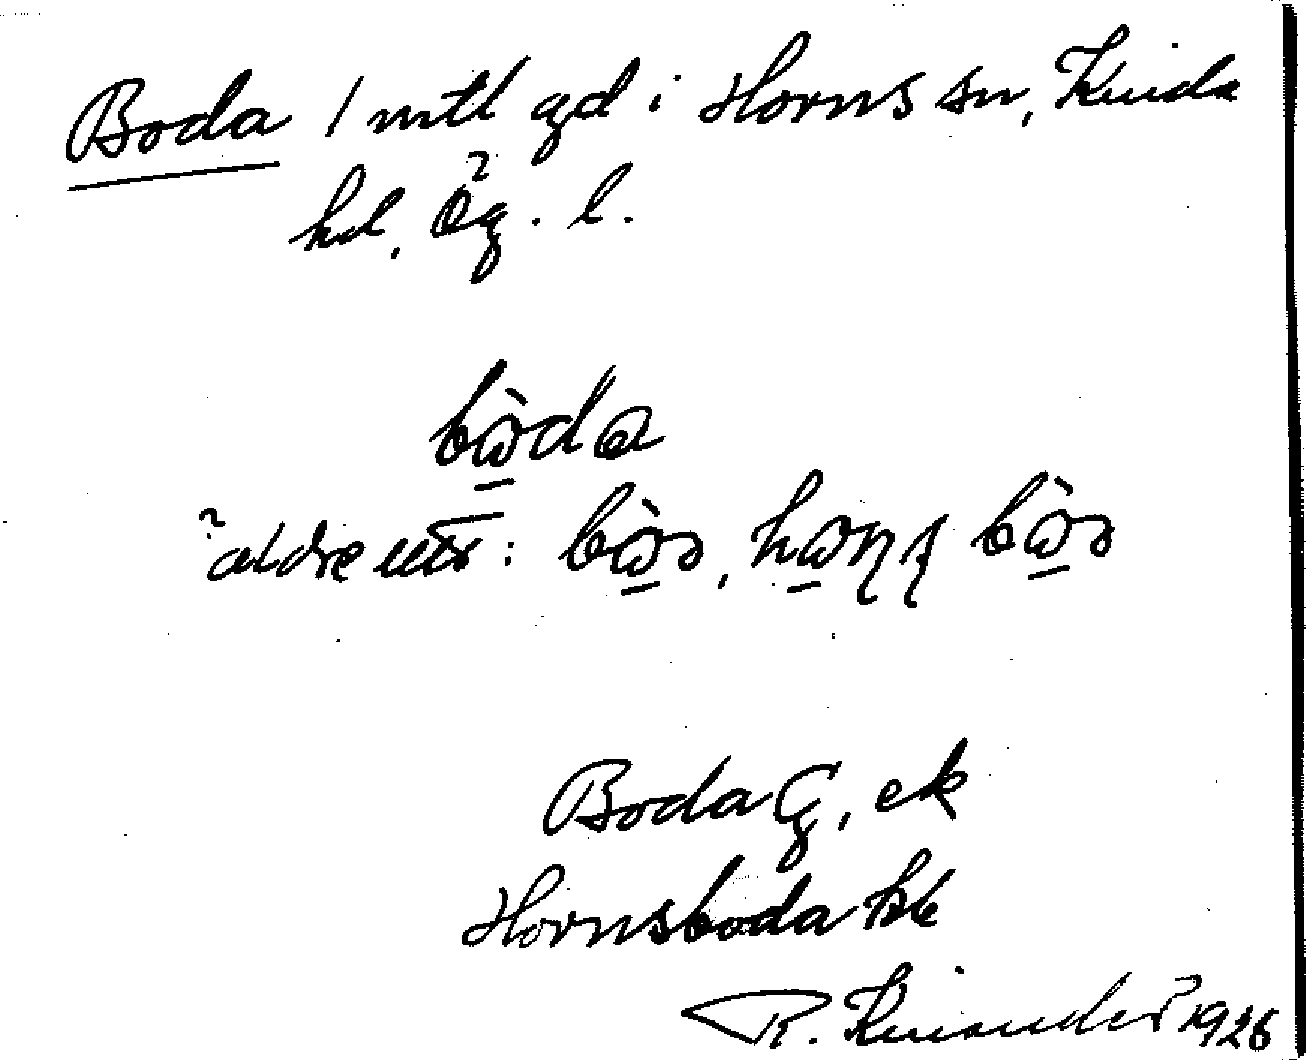 Boda 1 mtl gd i Horns sn, Kinda
hd, Ög. l.
bὼ̲da
äldre utt:
Boda G, ek
Hornsboda
R. Kinander 1926